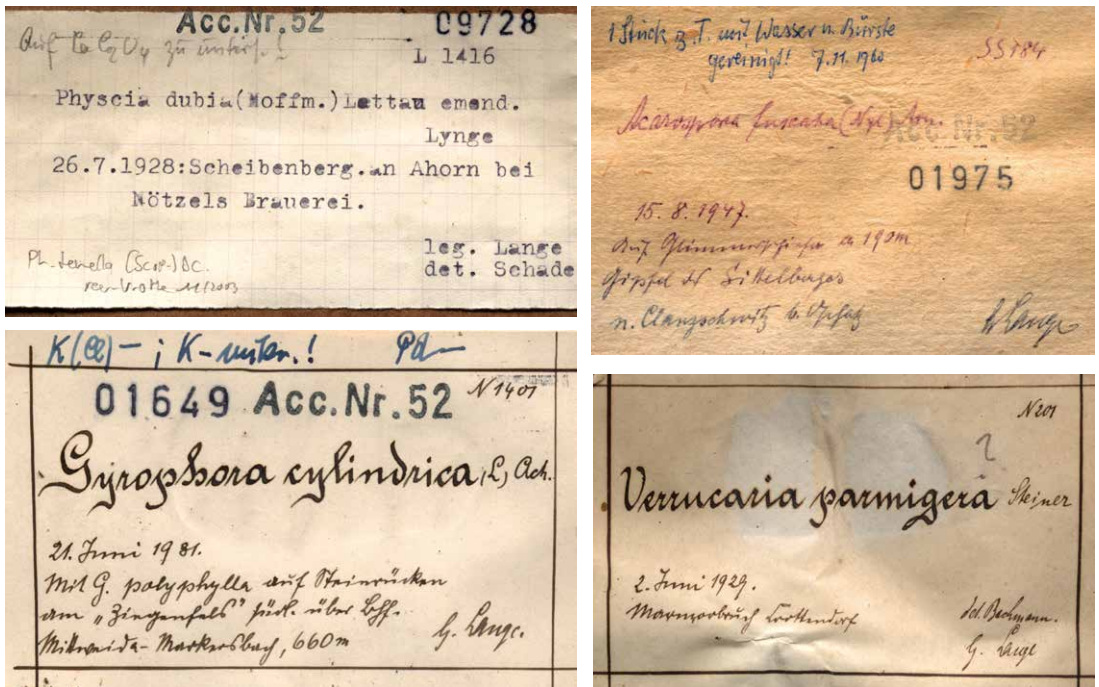 Acc.Nr.52 09728
Auf zu unters.!
L 1416
Physcia dubia(Hoffm.)Lettau emend.
Lynge
26.7.1928:Scheibenberg.an Ahorn bei
Nötzels Brauerei.
leg. Lange
det. Schade
Ph. tenella (Scop.) DC.
11/2003
1 Stück z. T. mit Wasser u. Bürste
gereinigt! 7.11.1960
SS184
Acarospora fuscata (Nyl.) Arn.
Acc.Nr.52
01975
15. 8. 1947.
Auf Glimmerschiefer 190m
Gipfel d.
n. Clanzschwitz b. Oschatz
Lange
K(Cl) – ; K – unter.! Pd –
N 1401
01649 Acc.Nr.52
Gyrophora cylindrica (L.) Ach.
21. Juni 1931.
Mit G. polyphylla auf Steinrücken
am „Ziegenfels" südl. über Bhf.
Mittweida-Markersbach, 660m
G. Lange.
N201
?
Verrucaria parmigera Steiner
2. Juni 1929.
Marmorbruch Crottendorf
det. Bachmann.
G. Lange